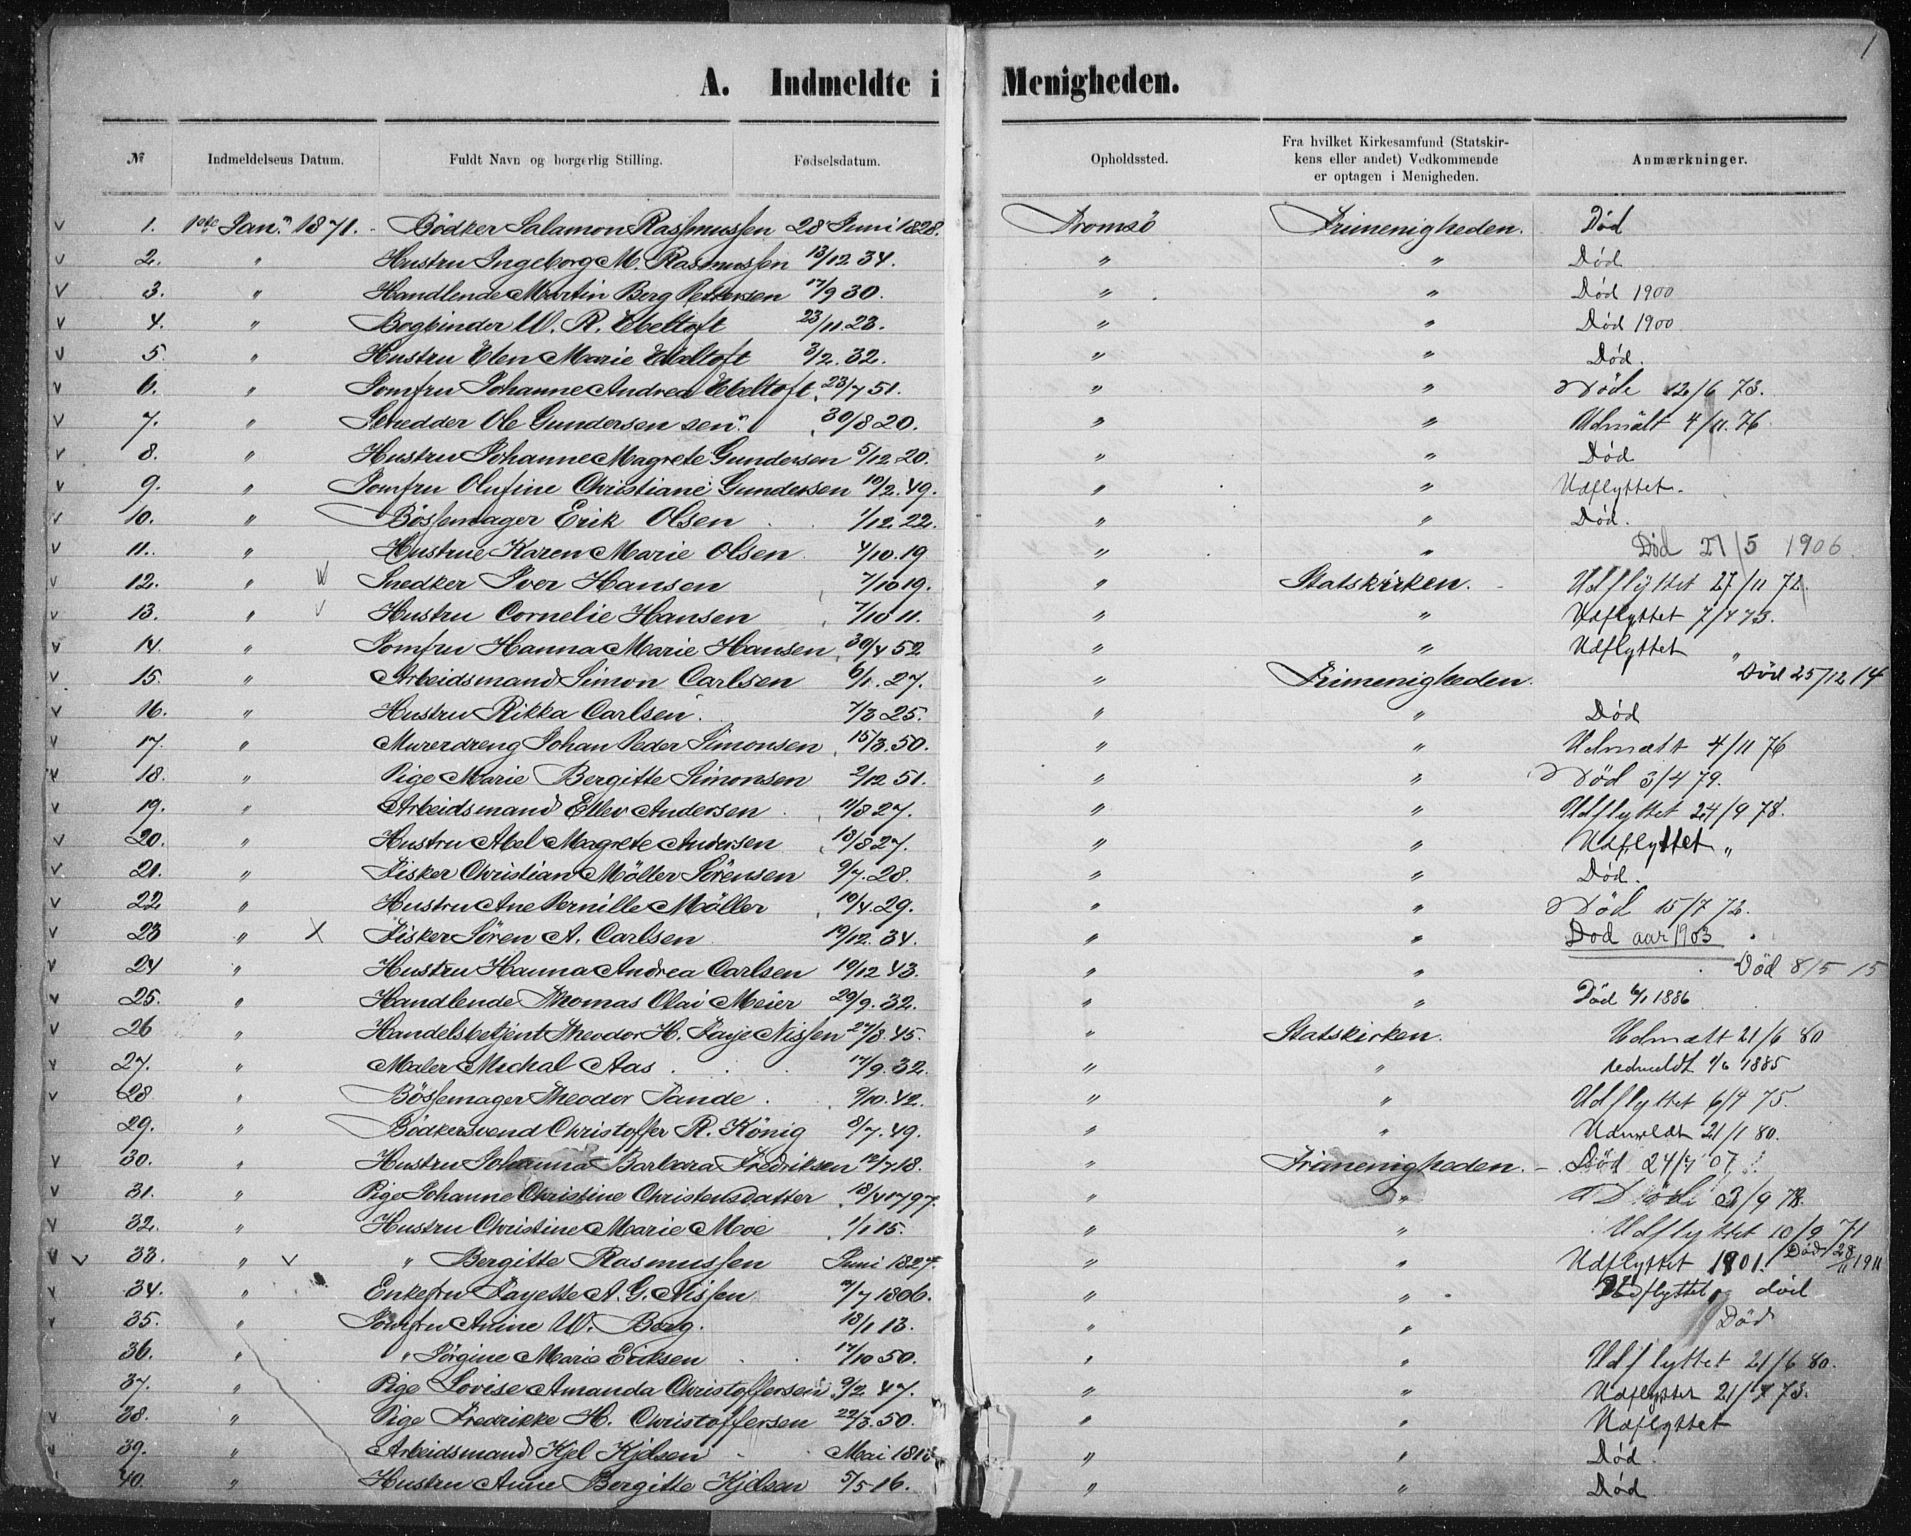 1
A. Indmeldte i Menigheden.
№ Indmeldelsens Datum. Fuldt Navn og borgerlig Stilling. Fødselsdatum. Opholdssted. Fra hvilket Kirkesamfund (Statskir-
kens eller andet) Vedkommende
er optagen i Menigheden. Anmærkninger.
v 1. 1ste Jan. 1871. Bödker Salamon Rasmussen 28 Juni 1828. Tromsö Frimenigheden. Død
v 2. " Hustru Ingeborg M. Rasmussen 13/12 34. " " Død
v 3. " Handlende Martin Berg Pettersen 17/9 30. " " Død 1900
v 4. " Bogbinder W. R. Ebeltoft 23/11 23. " " Død 1900
v 5. " Hustru Elen Marie Ebeltoft 3/2. 32. " " Død.
v 6. " Jomfru Johanne Andrea Ebeltoft 23/7 51. " " Döde 12/6 73.
v 7. " Skredder Ole Gundersen sen. 30/8 20. " " Udmält 4/11. 76.
v 8. " Hustru Johanne Magrete Gundersen 5/12 20. " " Død
v 9. " Jomfru Olufine Christiane Gundersen 10/2. 49. " " Udflyttet.
v 10. " Bössemager Erik Olsen 1/12 22. " " Død.
v 11. " Hustrue Karen Marie Olsen 4/10. 19 " " Død 21/5 1906.
v 12. " Snedker Iver Hansen 7/10 19. " Statskirken. Udflyttet 27/11 72.
v 13. " v Hustru Cornelie Hansen 7/10 11. " " Udflyttet 7/4 73.
v 14. " Jomfru Hanna Marie Hansen 30/4 52 " " Udflyttet "
v 15. " Arbeidsmand Simon Carlsen 6/1. 27. " Frimenigheden. Död 25/12 14
v 16. " Hustru Rikka Carlsen. 7/3 25. " " Død
v 17. " Murerdreng Johan Peder Simonsen 15/3. 50. " " Udmätt 4/11 76
v 18. " Pige Marie Bergitte Simonsen 2/12 51. " " Död 3/4 79.
v 19. " Arbeidsmand Ellev Andersen 11/8 27. " " Udflyttet 24/9 78.
v 20. " Hustru Abel Magrete Andersen 18/8 27. " " Udflyttet "
v 21. " Fisker Christian Möller Sörensen 9/7. 28. " " Død.
v 22 " Hustru Ane Pernille Möller 10/4. 29. " " Död 15/7 72.
v 23 " X Fisker Sören A. Carlsen 19/12. 34. " " Död aar 1903
v 24 " Hustru Hanna Andrea Carlsen 10/12 43. " " Död 8/5 15
v 25. " Handlende Thomas Olai Meier 29/9. 32. " " Död 6/1 1886
v 26 " Handelsbetjent Theodor H. Faye Nissen 27/8. 45. " Statskirken. Udmätt 21/6 80
v 27. " Maler Michal Aas 17/9. 32. " " Udmeldt 1/6 1885
v 28 " Bössemager Theodor Tande. 9/10. 42. " " Udflyttet 6/4 75.
29. " Bödkersvend Christoffer R. König 8/7. 49. " " Udmeldt 21/1 80.
v 30. " Hustru Johanna Barbara Fredriksen 12/7 18. " Frimenigheden. Död 24/7 07.
v 31. " Pige Johanne Christine Christensdatter 18/4 1797. " " Död 3/9 78.
v 32. " Hustru Christine Marie Moe 1/1 15. " " Udflyttet 10/9 71
v v 33. " v " Bergitte Rasmussen Juni 1827. " " Udflyttet 1901. Död 28/11 1911
v 34. " Enkefru Fayette A. G. Nissen 2/7 1806. " " Udflyttet og död
v 35. " Jomfru Anine W. Berg. 18/1 13. " " Død
36. " " Jörgine Marie Eriksen 17/10 50. " " Udflyttet 21/6 80.
37. " Pige Lovise Amanda Christoffersen 9/2. 47. " " Udflyttet 21/7 73.
v 38. " Pige Fredrikke H. Christoffersen 22/3. 50. " " Udflyttet
v 39. " Arbeidsmand Kjel Kjelsen Mai 1818 " " Død.
v 40. " Hustru Anne Bergitte Kjelsen 5/5 16. " " Død